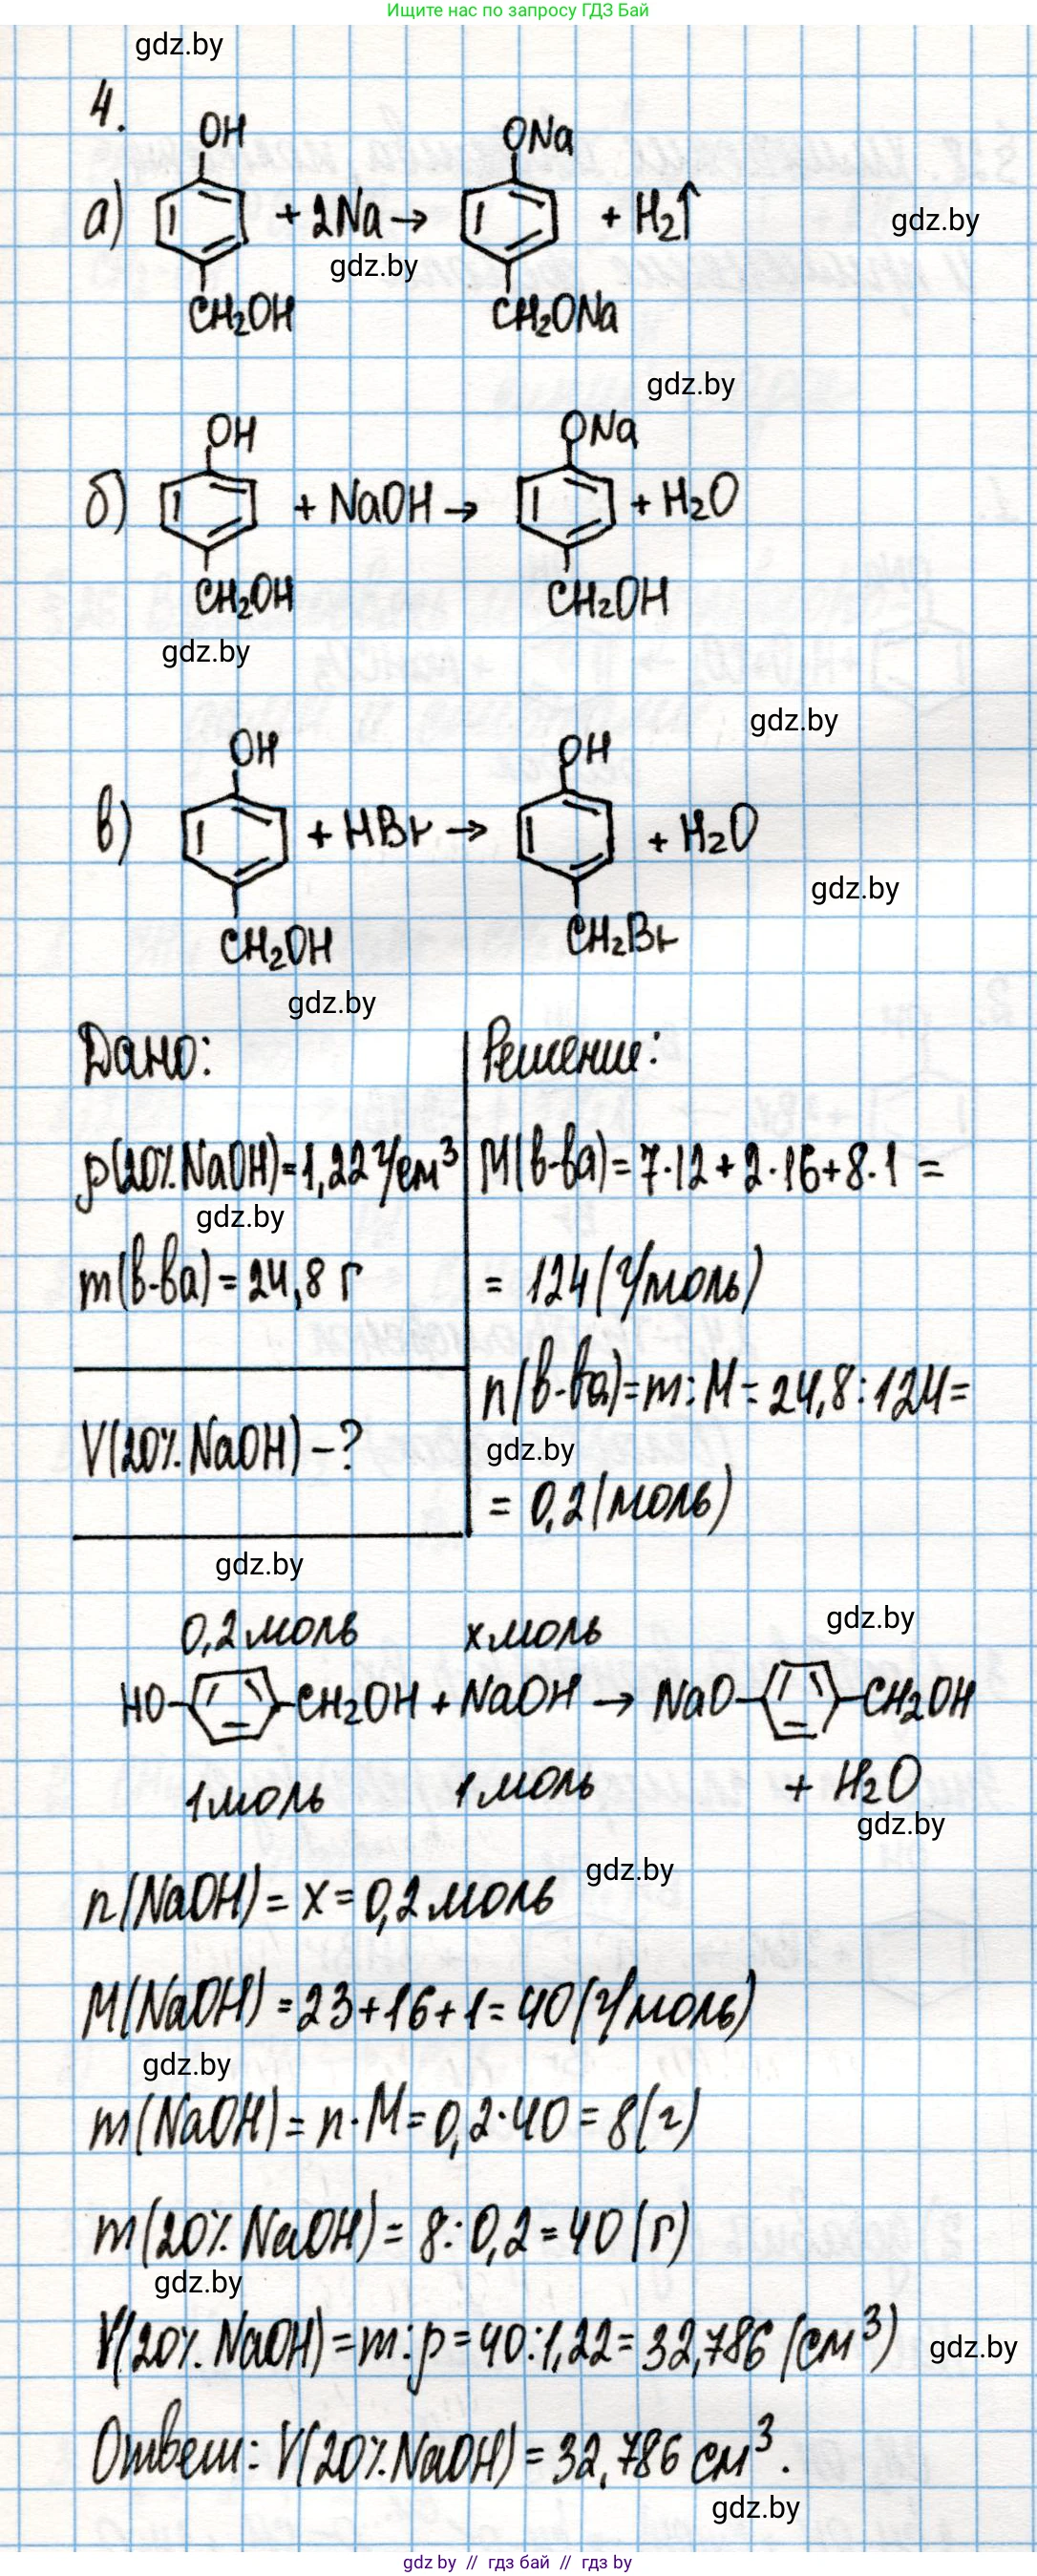 Ищите нас по запросу ГДЗ Бай
gdz.by
4.
OH ONa
а) + 2Na → + H₂↑ gdz.by
gdz.by
CH₂OH CH₂ONa
gdz.by
OH ONa
б) + NaOH → + H₂O
CH₂OH CH₂OH
gdz.by
gdz.by
OH OH
в) + HBr → + H₂O
gdz.by
CH₂OH CH₂Br
gdz.by
Дано: Решение:
ρ(20% NaOH)=1,22 г/см³ M(в-ва)=7·12+2·16+8·1 =
gdz.by
m(в-ва)=24,8 г = 124(г/моль)
n(в-ва)=m:M=24,8:124=
V(20% NaOH)-? gdz.by
= 0,2(моль)
gdz.by
0,2 моль x моль gdz.by
HO- -CH₂OH + NaOH → NaO- -CH₂OH
1 моль 1 моль + H₂O
gdz.by
gdz.by
n(NaOH)= x= 0,2 моль
M(NaOH)=23+16+1=40(г/моль)
gdz.by
m(NaOH)= n·M=0,2·40=8(г)
m(20% NaOH)= 8:0,2=40(г)
gdz.by
V(20% NaOH)=m:ρ=40:1,22=32,786 (см³) gdz.by
Ответ: V(20% NaOH)=32,786 см³.
gdz.by
gdz by // гдз бай // гдз by